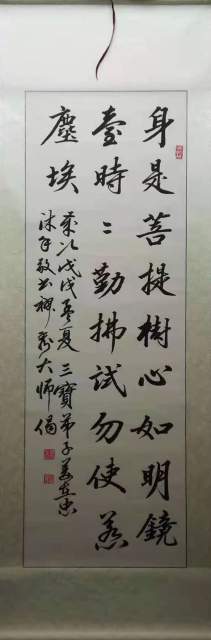 身是菩提樹心如明鏡
臺時〻勤拂試勿使惹
塵埃
歲次戊戌夏三寶弟子
沐手敬書神秀大師偈